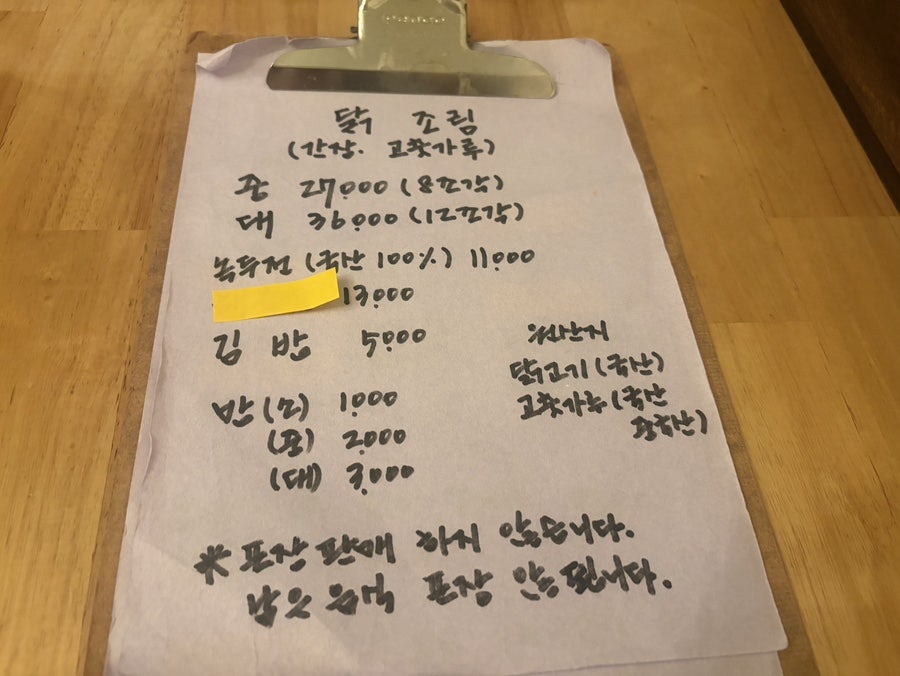 닭 조림
(간장. 고춧가루)
중 27,000 (8조각)
대 36,000 (12조각)
녹두전 (국산 100%) 11,000
13,000
김 밥 5,000
밥 (소) 1,000
(중) 2,000
(대) 3,000
원산지
닭고기 (국산)
고춧가루 (국산
중국산)
* 포장 판매 하지 않습니다.
남은 음식 포장 않됩니다.